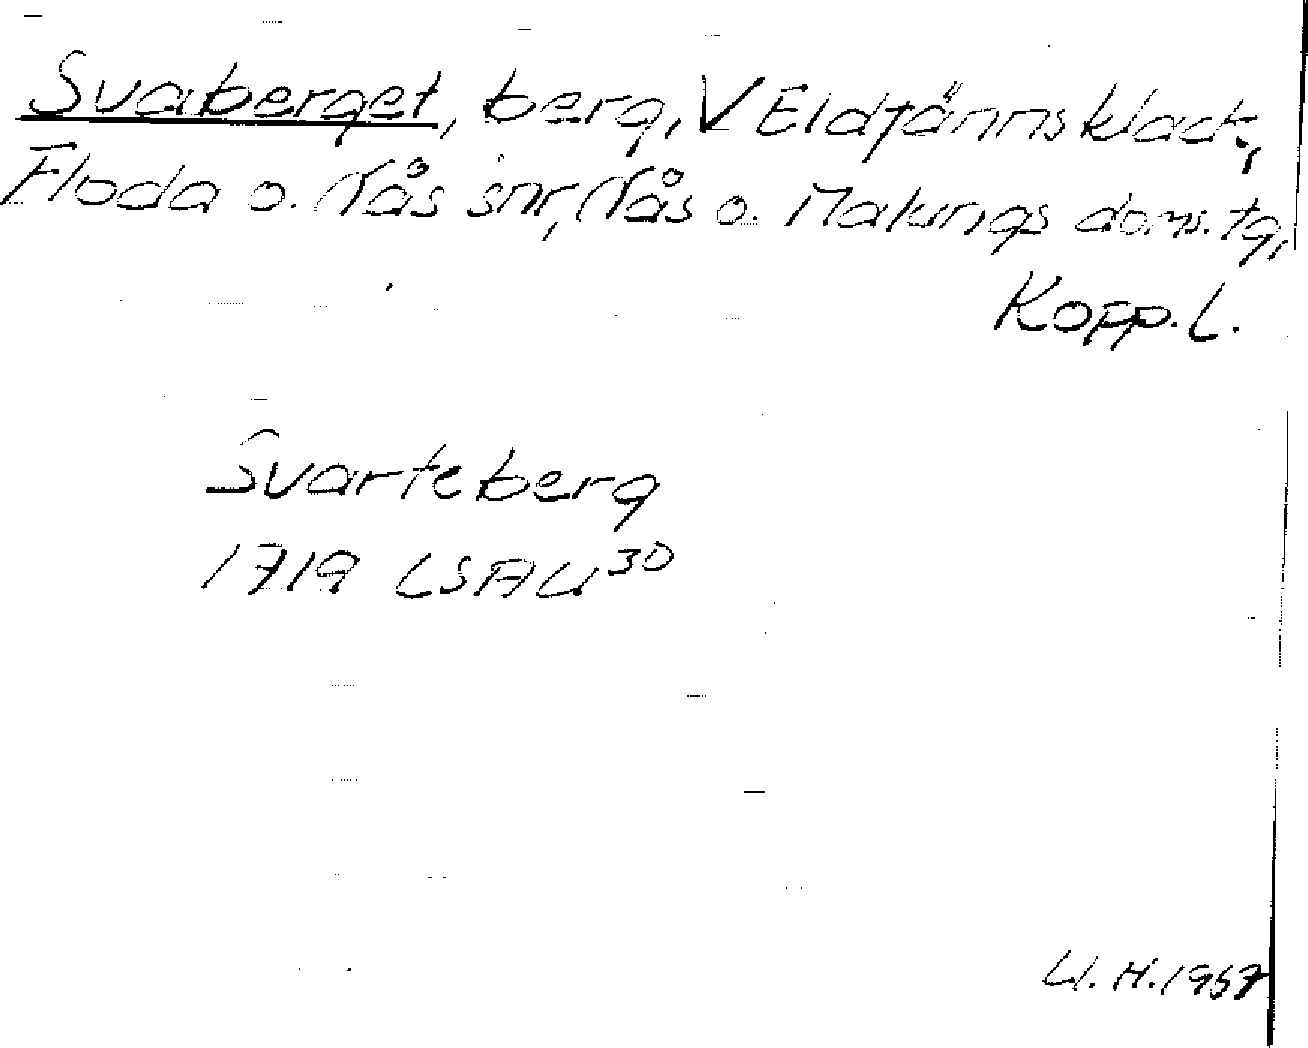 Svaberget, berg, V Eldtjännsklack,
Floda o. Nås snr, Nås o. Malungs doms. tg,
Kopp. l.
Svarteberg
1719 LSAU³⁰
U. H. 1967